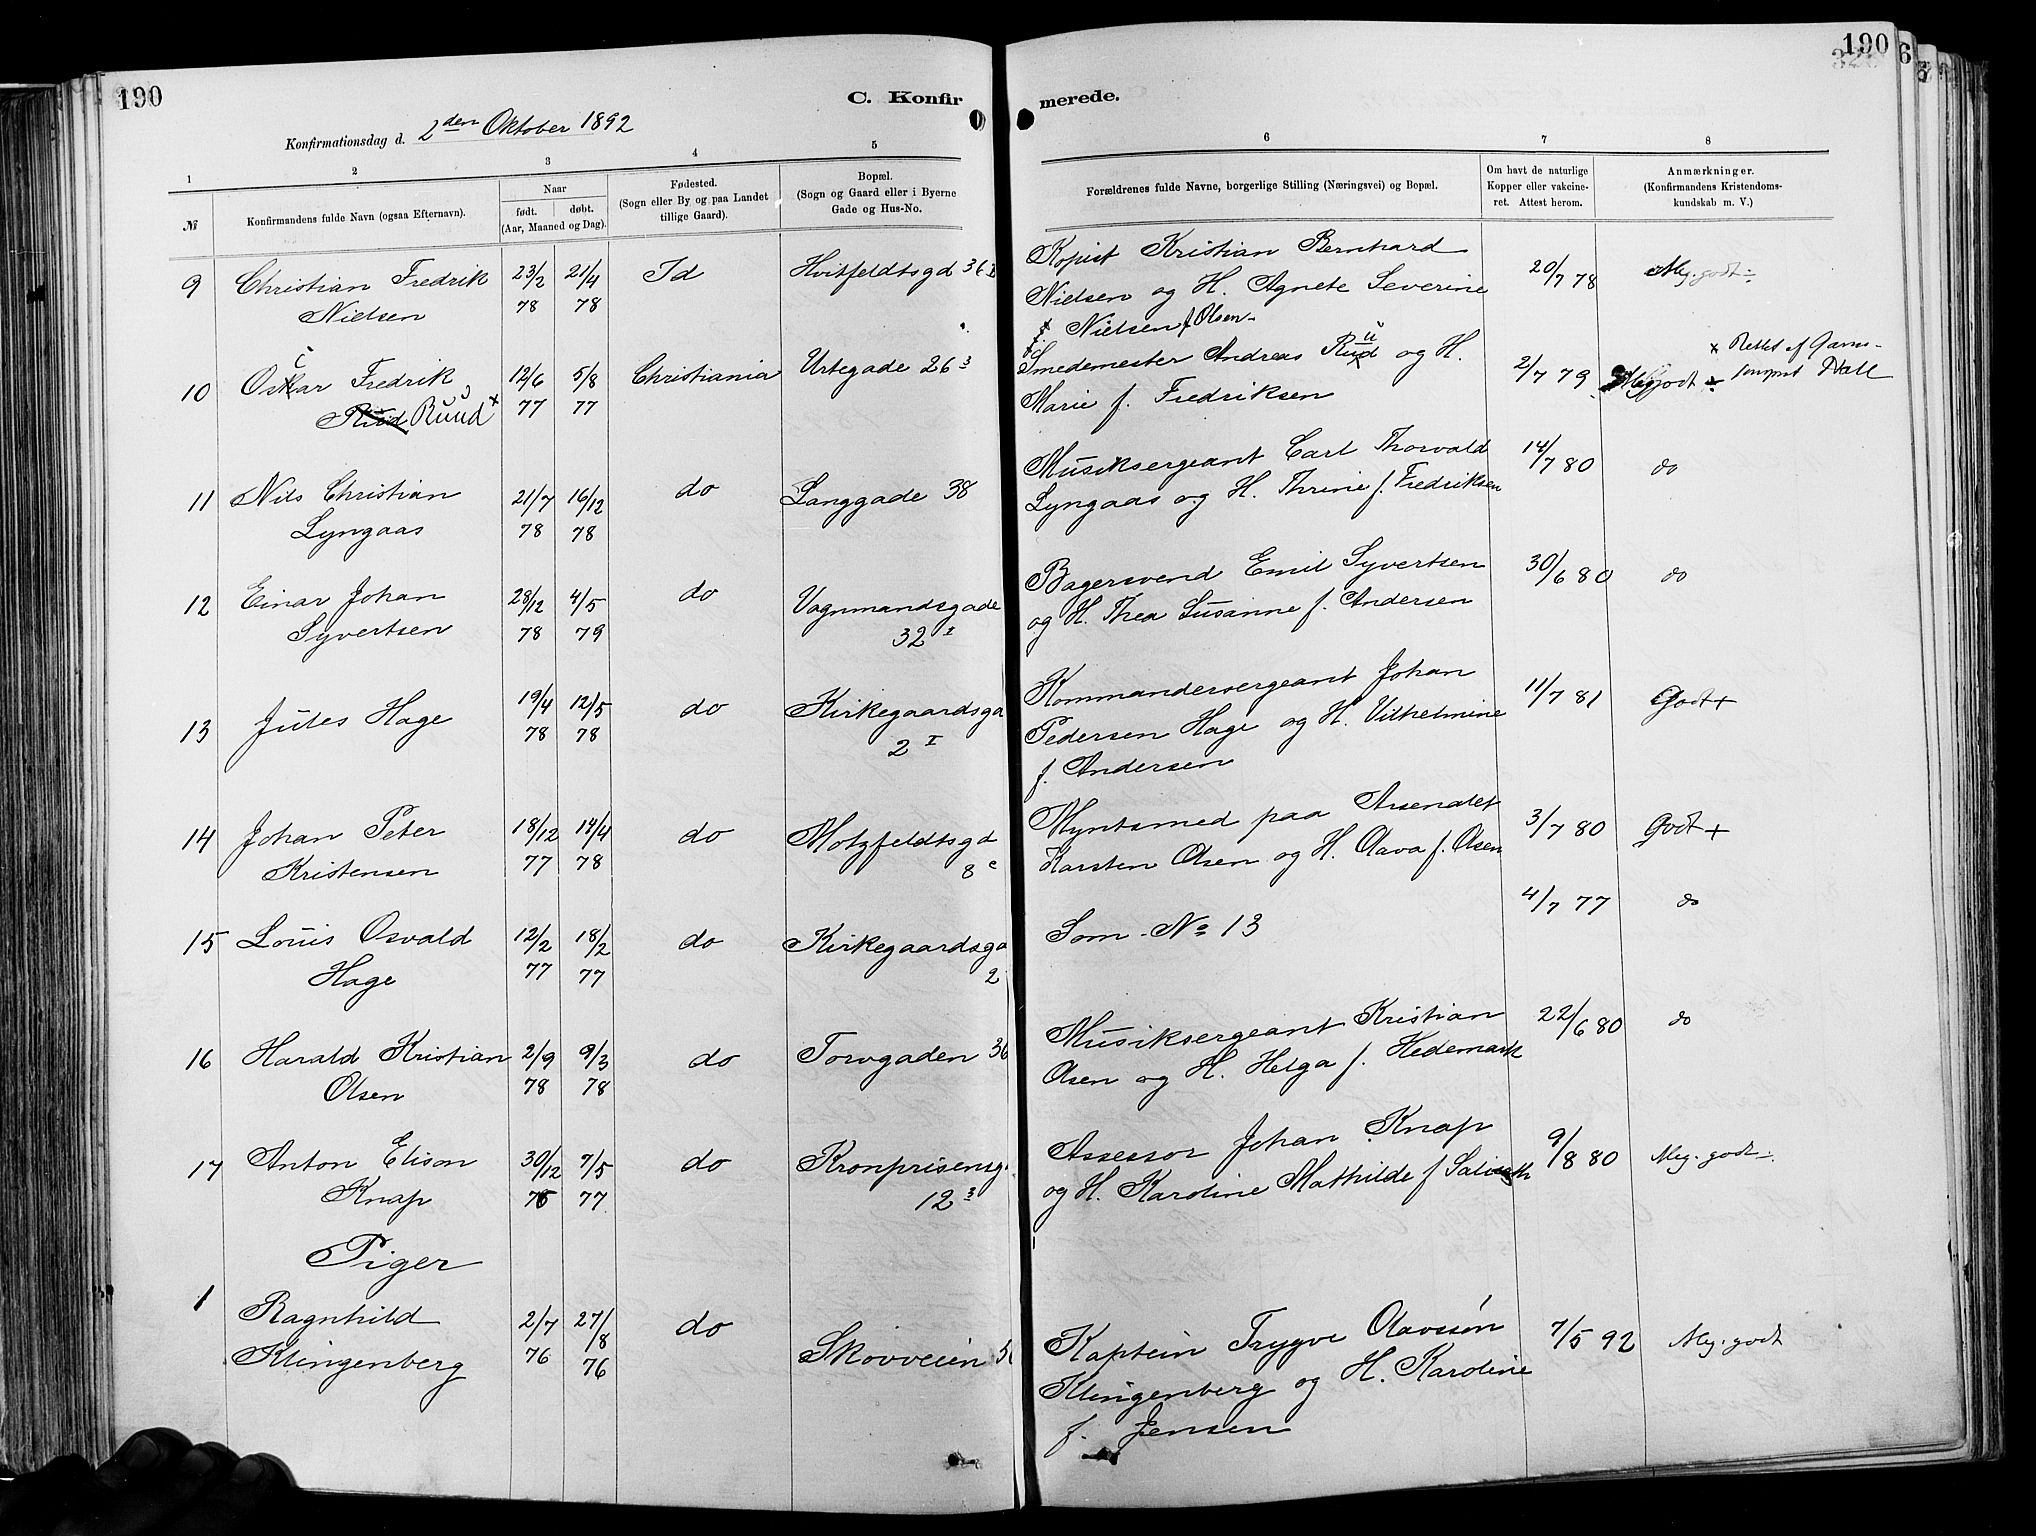 190
190
C. Konfirmerede.
Konfirmationsdag d. 2den Oktober 1892
1 2 3 4 5 6 7 8
№
Konfirmandens fulde Navn (ogsaa Efternavn).
Naar
født. døbt.
(Aar, Maaned og Dag).
Fødested.
(Sogn eller By og paa Landet
tillige Gaard).
Bopæl.
(Sogn og Gaard eller i Byerne
Gade og Hus-No.
Forældrenes fulde Navne, borgerlige Stilling (Næringsvei) og Bopæl.
Om havt de naturlige
Kopper eller vakcine-
ret. Attest herom.
Anmærkninger.
(Konfirmandens Kristendoms-
kundskab m. V.)
9 Christian Fredrik Nielsen
23/2 78 21/4 78
Id
Hvitfeldtsgd 36
Kopist Kristian Bernhard
Nielsen og H. Agnete Severine
Nielsen f Olsen
20/7 78
Meg. godt ÷
10 Oscar Fredrik
Rud Ruud x
12/6 77 5/8 77
Christiania
Urtegade 26 3
Smedemester Andreas Ruud og H.
Marie f. Fredriksen
2/7 79
Meg godt ÷
x Rettet af
Hall
11 Nils Christian
Lyngaas
21/7 78 16/12 78
do
Langgade 38
Musiksergeant Carl Thorvald
Lyngaas og H. Thrine f. Fredriksen
14/7 80
do
12 Einar Johan
Syvertsen
28/12 78 4/5 79
do
Vognmandsgade
32 I
Bagersvend Emil Syvertsen
og H. Thea Susanne f. Andersen
30/6 80
do
13 Jules Hage
19/4 78 12/5 78
do
Kirkegaardsga
2 I
Kommandersergeant Johan
Pedersen Hage og H. Vilhelmine
f. Andersen
11/7 81
Godt +
14 Johan Peter
Kristensen
18/12 77 14/4 78
do
Motzfeldtsgd
8 c
Myntsmed paa Arsenalet
Karsten Olsen og H. Olava f. Olsen
3/7 80
Godt +
15 Louis Osvald
Hage
12/2 77 18/2 77
do
Kirkegaardsga
2
Som No 13
4/7 77
do
16 Harald Kristian
Olsen
2/9 78 9/3 78
do
Torvgaden 36
Musiksergeant Kristian
Olsen og H. Helga f. Hedemark
22/6 80
do
17 Anton Elison
Knap
30/12 76 7/5 77
do
Kronprisensg
12 3
Assessor Johan Knap
og H. Karoline Mathilde f
9/8 80
Meg. godt ÷
Piger
1 Ragnhild
Klingenberg
2/7 76 27/8 76
do
Skovveien
Kaptein Trygve Olavssøn
Klingenberg og H. Karoline
f. Jensen
7/5 92
Meg. godt